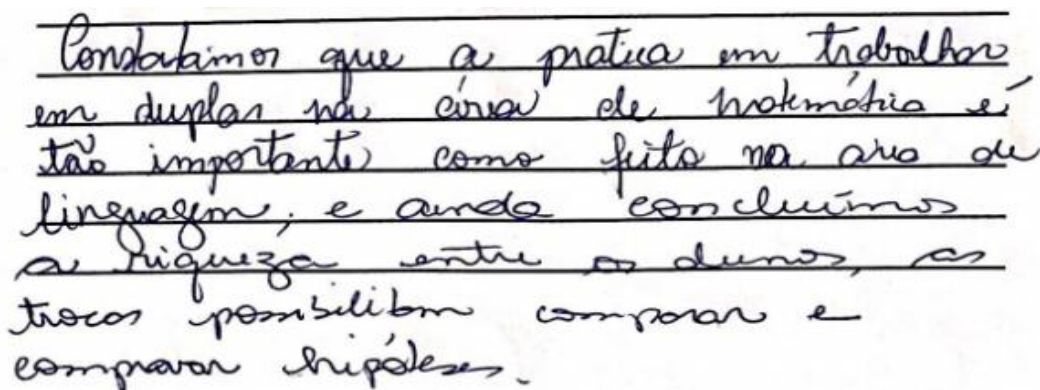 Constatamos que a pratica em trabalhar
em duplas na área de matemática é
tão importante como feito na area de
linguagem, e ainda concluímos
a riqueza entre os alunos, as
trocas possibilitam comparar e
comprovar hipóteses.